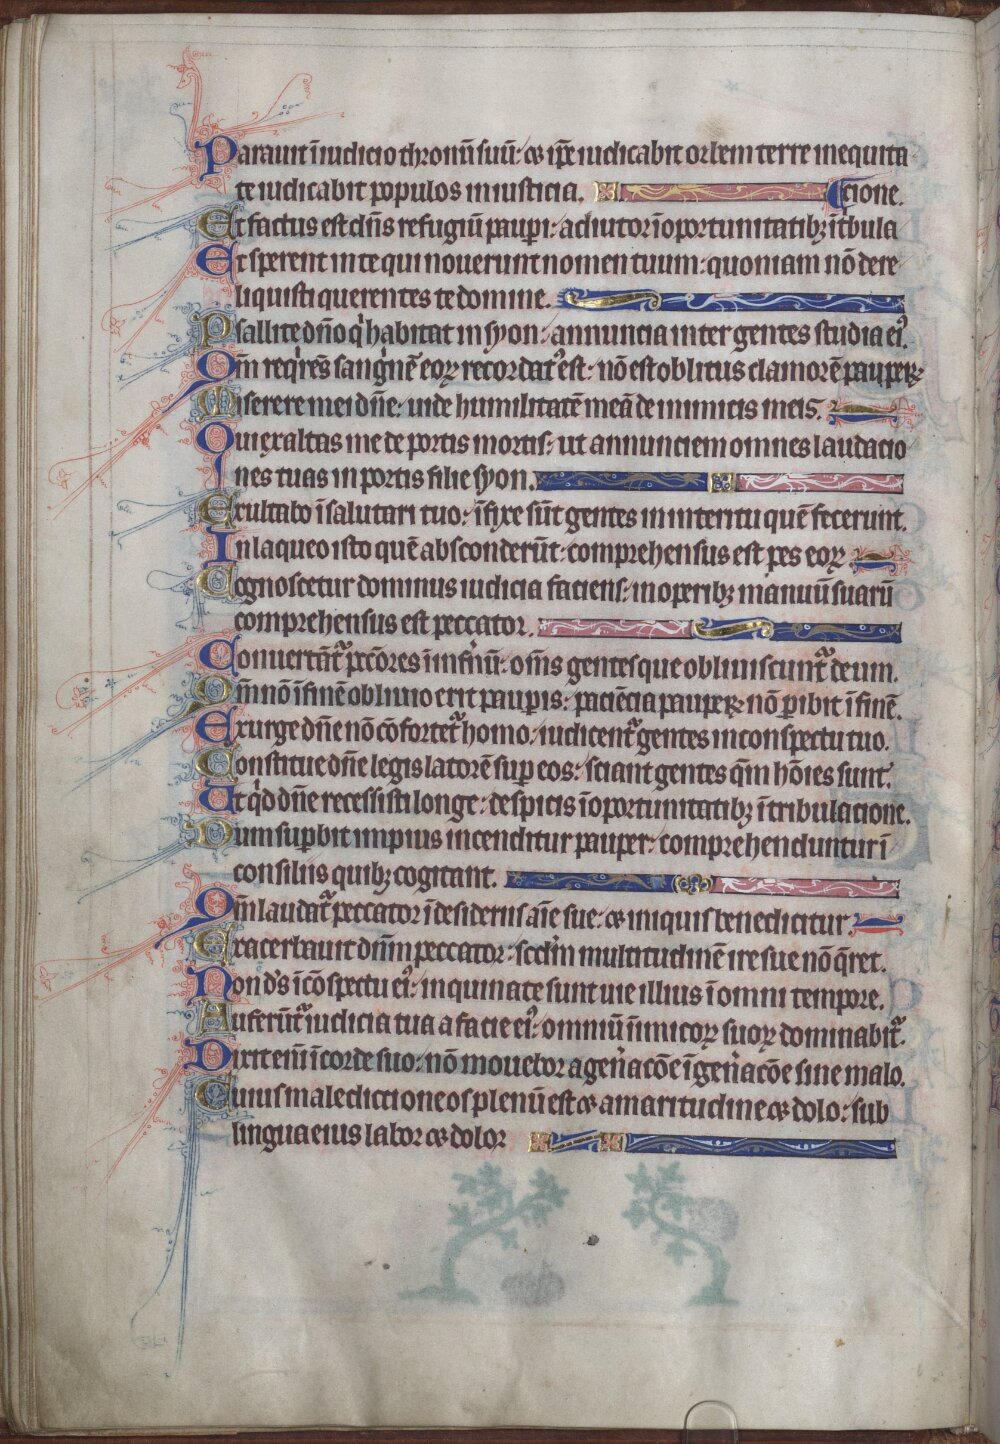 Parauit ĩ iudicio thronũ suũ: ⁊ ip̃e iudicabit orbem terre in equita
te iudicabit populos in iusticia. cione.
Et factus est dñs refugiũ paupi: adiutor ĩ oportunitatibꝫ ĩ tbula
Et sperent in te qui nouerunt nomen tuum: quoniam nõ dere
liquisti querentes te domine.
Psallite dño qͥ habitat in syon: annuncia inter gentes studia eiꝰ.
Qm̃ reqͥrẽs sangͥnẽ eoꝝ recordatꝰ est: nõ est oblitus clamorẽ pauperꝝ
Miserere mei dñe: uide humilitatẽ meã de inimicis meis.
Qui exaltas me de portis mortis: ut annunciem omnes laudacio
nes tuas in portis filie syon.
Exultabo ĩ salutari tuo: ĩfixe sũt gentes in interitu quẽ fecerunt.
In laqueo isto quẽ absconderũt: comprehensus est pes eoꝝ
Cognoscetur dominus iudicia faciens: in operibꝫ manuũ suarũ
comprehensus est peccator.
Conuertãtᷓ pccõres in infnũ: om̃s gentes que obliuiscuntᷓ deum.
Qm̃ nõ ĩ finẽ obliuio erit paupis: paciẽcia pauperꝝ nõ ꝑibit ĩ finẽ.
Exurge dñe nõ cõfortetᷓ homo: iudicentᷓ gentes in conspectu tuo.
Constitue dñe legis latorẽ suꝑ eos: sciant gentes qm̃ hõies sunt.
Ut qͥd dñe recessisti longe: despicis ĩ oportunitatibꝫ ĩ tribulacione.
Dum supbit impius incenditur pauper: comprehenduntur ĩ
consiliis quibꝫ cogitant.
Qm̃ laudatᷓ peccator ĩ desideriis aĩe sue: ⁊ iniquis benedicitur.
Exacerbauit dñm peccator: scdm̃ multitudinẽ ire sue nõ q̃ret.
Non dꝰs ĩ cõspectu eiꝰ: inquinate sunt uie illius ĩ omni tempore.
Auferũtᷓ iudicia tua a facie eiꝰ: omniũ inimicoꝝ suoꝝ dominabitᷓ.
Dixit eñi ĩ corde suo: nõ mouebor a geñacõe ĩ geñacõe sine malo.
Cuius maledictione os plenũ est ⁊ amaritudine ⁊ dolo: sub
lingua eius labor ⁊ dolor